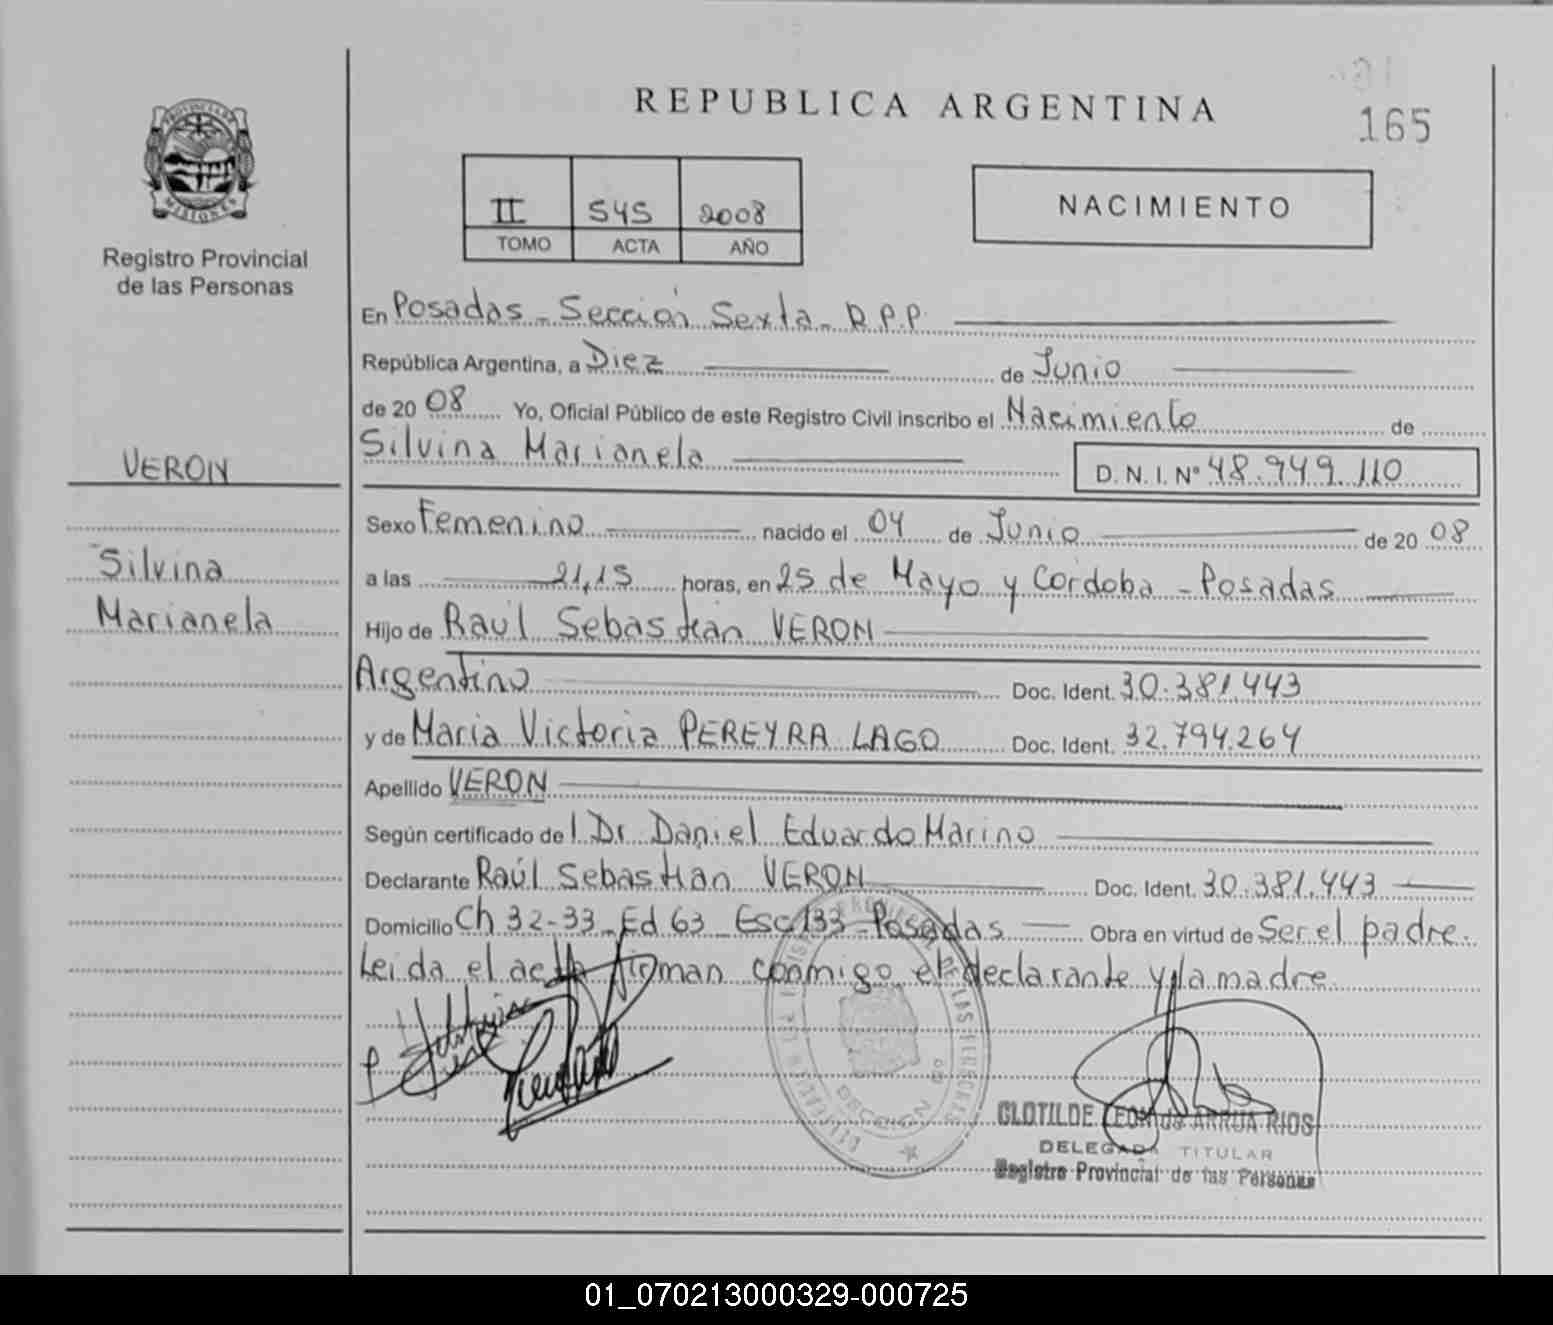 REPUBLICA ARGENTINA
165
PROVINCIA DE
MISIONES
Registro Provincial
de las Personas
II 545 2008
TOMO ACTA AÑO
NACIMIENTO
En Posadas - Sección Sexta - R.P.P.
República Argentina, a Diez de Junio
de 20 08 Yo, Oficial Público de este Registro Civil inscribo el Nacimiento de
Silvina Marianela
D. N. I. Nº 48.949.110
VERON
Silvina
Marianela
Sexo Femenino nacido el 04 de Junio de 20 08
a las 21,15 horas, en 25 de Mayo y Cordoba - Posadas
Hijo de Raúl Sebastián VERON
Argentino Doc. Ident. 30.381.443
y de Maria Victoria PEREYRA LAGO Doc. Ident. 32.794.264
Apellido VERON
Según certificado de l Dr. Daniel Eduardo Marino
Declarante Raúl Sebastian VERON Doc. Ident. 30.381.443
Domicilio Ch 32-33 - Ed 63 - Esc 133 - Posadas Obra en virtud de Ser el padre.
Leida el acta firman conmigo el declarante y la madre.
SECCION
CLOTILDE LEON de ARRUA RIOS
DELEGADA TITULAR
Registro Provincial de las Personas
01_070213000329-000725